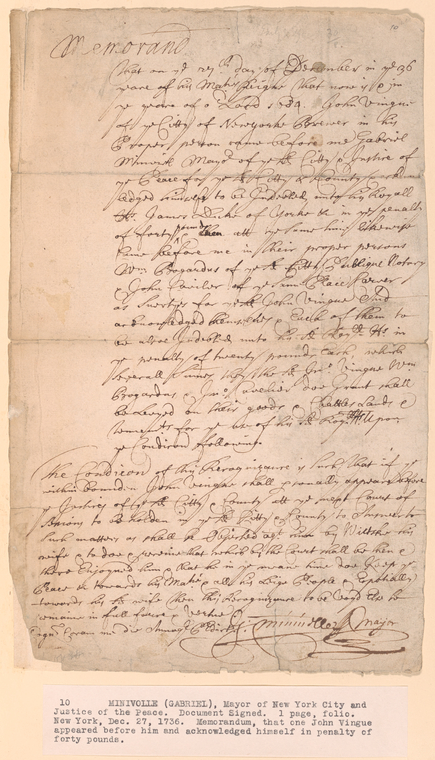 Memorand
that on ye day of December in ye 36
yeare of his Maties Reigne that now is & in
ye yeare of o Lord John Vingue
of ye Citty of New Yorke Brewer in his
Proper person came before me Gabriel
Minvielle Mayor of ye sd Citty & Justice of
ye Peace for ye sd Citty & County
ledged himself to be Indebted unto his Royall
Hs James Duke of Yorke &c in ye penalty
of forty pounds then att ye same time likewise
Came before me in their proper persons
Wm Bogardus of ye sd Citty Publique Notary
& John of ye same Place
as suertyes for ye sd John Vingue and
acknowledged themselves & Each of them to
be alsoe Indebted unto his sd Royll Hs in
ye penalty of twenty pounds Each, which
severall sumes they the sd Jno. Vingue Wm
Bogardus & Jno. doe Grant shall
be Levyed on their goods & Chattles Lands &
tenemts for ye use of his sd Royll Hs Upon
ye Condicon following
The Condicon of this Recognizance is such that if ye
within bounden John Vingue shall p'sonally appeare before
ye Justices of ye sd Citty & County att ye next Court of
Sessions to be holden in ye sd Citty & County to Answer to
such matters as shall be Objected agt him by his
wife & to doe & receive that which by the Court shall be then &
there Enjoyned him & that he in ye meane time doe Keep ye
Peace towards his Matie & all his Liege People & Especially
towards his sd wife then this Recognizance to be Voyd Or to
remaine in full force & vertue
G Minvielle Major
10 MINIVOLLE (GABRIEL), Mayor of New York City and
Justice of the Peace. Document Signed. 1 page, folio.
New York, Dec. 27, 1736. Memorandum, that one John Vingue
appeared before him and acknowledged himself in penalty of
forty pounds.